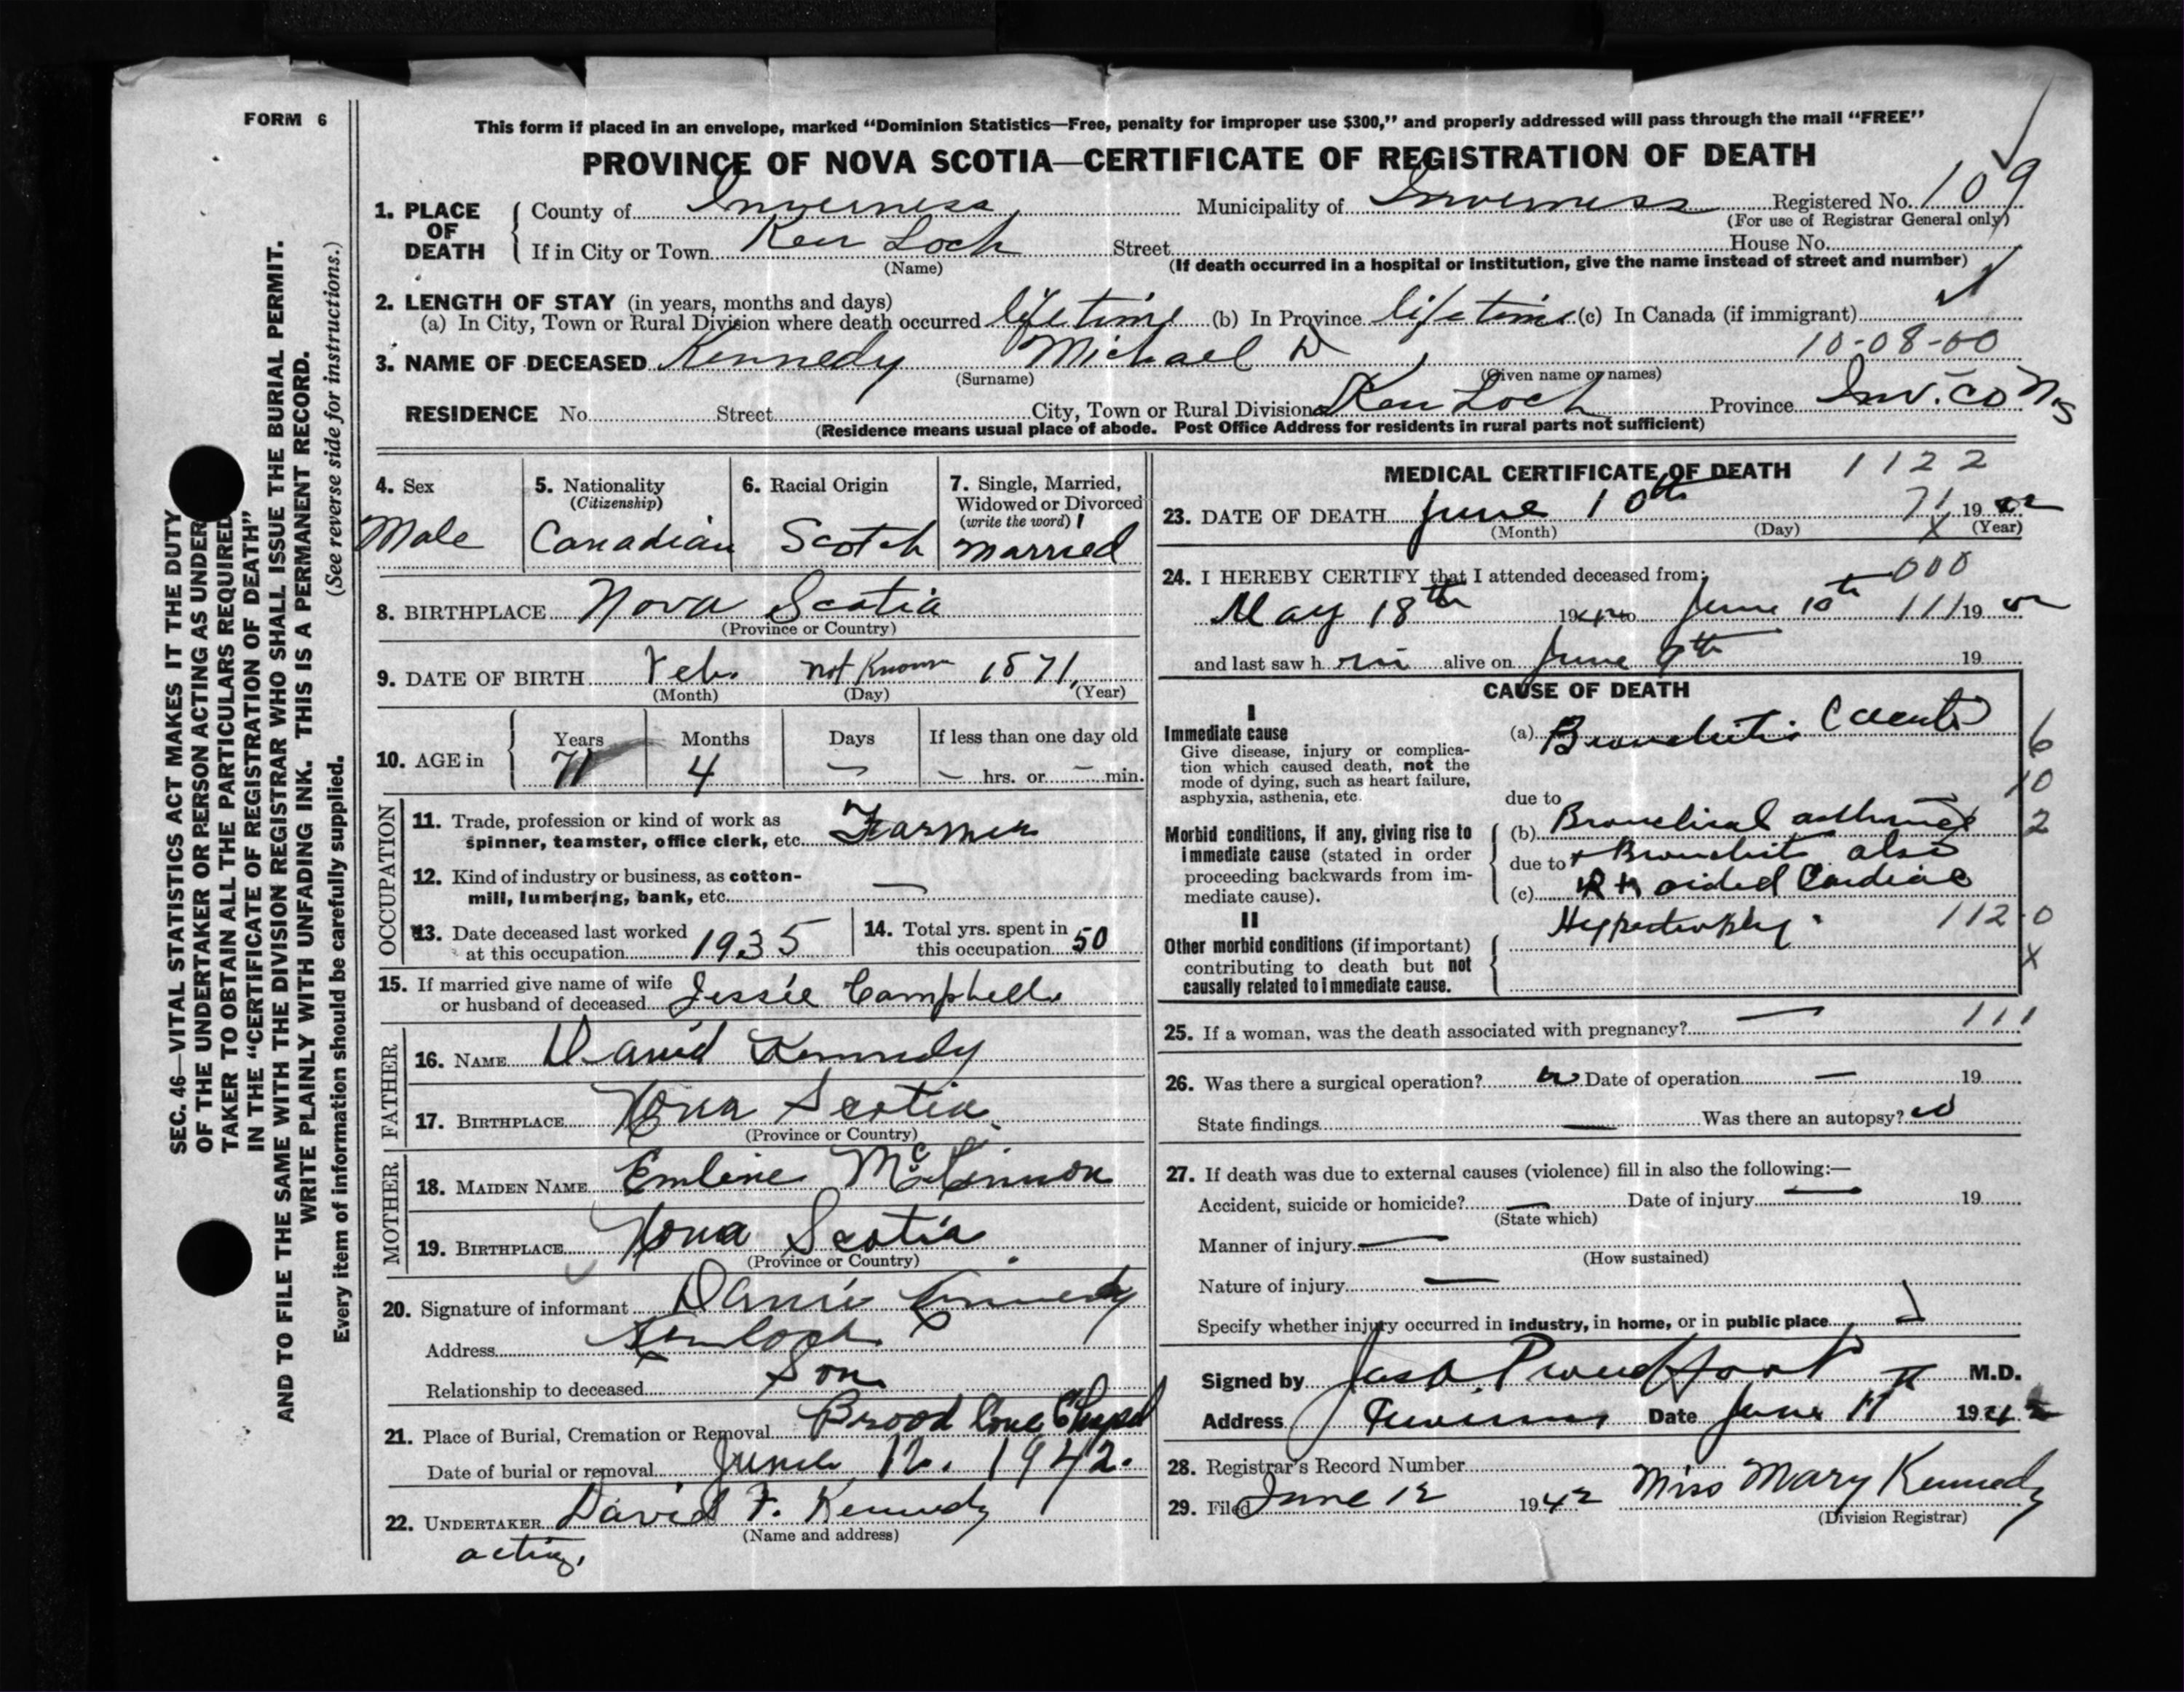 FORM 6
This form if placed in an envelope, marked "Dominion Statistics—Free, penalty for improper use $300," and properly addressed will pass through the mail "FREE"
PROVINCE OF NOVA SCOTIA—CERTIFICATE OF REGISTRATION OF DEATH
1. PLACE OF DEATH County of Inverness Municipality of Inverness Registered No. 109
(For use of Registrar General only)
If in City or Town Ken Loch Street House No.
(Name) (If death occurred in a hospital or institution, give the name instead of street and number)
2. LENGTH OF STAY (in years, months and days)
(a) In City, Town or Rural Division where death occurred life time (b) In Province life time (c) In Canada (if immigrant)
10-08-00
3. NAME OF DECEASED Kennedy Michael D
(Surname) (Given name or names)
RESIDENCE No. Street City, Town or Rural Division Ken Loch Province Inv. Co N.S
(Residence means usual place of abode. Post Office Address for residents in rural parts not sufficient)
4. Sex Male
5. Nationality (Citizenship) Canadian
6. Racial Origin Scotch
7. Single, Married, Widowed or Divorced (write the word) Married
8. BIRTHPLACE Nova Scotia
(Province or Country)
9. DATE OF BIRTH Feb. not Known 1871
(Month) (Day) (Year)
10. AGE in Years Months Days If less than one day old
71 4 — — hrs. or — min.
OCCUPATION
11. Trade, profession or kind of work as spinner, teamster, office clerk, etc. Farmer
12. Kind of industry or business, as cotton-mill, lumbering, bank, etc. —
13. Date deceased last worked at this occupation 1935
14. Total yrs. spent in this occupation 50
15. If married give name of wife or husband of deceased Jessie Campbell
FATHER
16. NAME David Kennedy
17. BIRTHPLACE Nova Scotia
(Province or Country)
MOTHER
18. MAIDEN NAME Emline
19. BIRTHPLACE Nova Scotia
(Province or Country)
20. Signature of informant Kennedy
Address Kenloch
Relationship to deceased Son
21. Place of Burial, Cremation or Removal Broad Cove Chapel
Date of burial or removal June 12. 1942.
22. UNDERTAKER David F. Kennedy
(Name and address)
acting.
MEDICAL CERTIFICATE OF DEATH 1122
23. DATE OF DEATH June 10th 71 19 42
(Month) (Day) X (Year)
24. I HEREBY CERTIFY that I attended deceased from: 000
May 18th 1942 to June 10th 111 19 42
and last saw h im alive on June 9th 19
CAUSE OF DEATH
I
Immediate cause
Give disease, injury or complication which caused death, not the mode of dying, such as heart failure, asphyxia, asthenia, etc.
(a) Bronchitis (acute) 6
10
due to
Morbid conditions, if any, giving rise to immediate cause (stated in order proceeding backwards from immediate cause).
(b) Bronchial asthma 2
due to + Bronchitis also
(c) Rt sided Cardiac
Hypertrophy. 112-0
X
II
Other morbid conditions (if important) contributing to death but not causally related to immediate cause.
25. If a woman, was the death associated with pregnancy? — 111
26. Was there a surgical operation? no Date of operation — 19
State findings — Was there an autopsy? no
27. If death was due to external causes (violence) fill in also the following:—
Accident, suicide or homicide? — Date of injury — 19
(State which)
Manner of injury —
(How sustained)
Nature of injury —
Specify whether injury occurred in industry, in home, or in public place
Signed by Jas A. Proudfoot M.D.
Address Inverness Date June 11 1942
28. Registrar's Record Number
29. Filed June 12 1942 Miss Mary Kennedy
(Division Registrar)
SEC. 46—VITAL STATISTICS ACT MAKES IT THE DUTY
OF THE UNDERTAKER OR PERSON ACTING AS UNDER
TAKER TO OBTAIN ALL THE PARTICULARS REQUIRED
IN THE "CERTIFICATE OF REGISTRATION OF DEATH"
AND TO FILE THE SAME WITH THE DIVISION REGISTRAR WHO SHALL ISSUE THE BURIAL PERMIT.
WRITE PLAINLY WITH UNFADING INK. THIS IS A PERMANENT RECORD.
Every item of information should be carefully supplied. (See reverse side for instructions.)